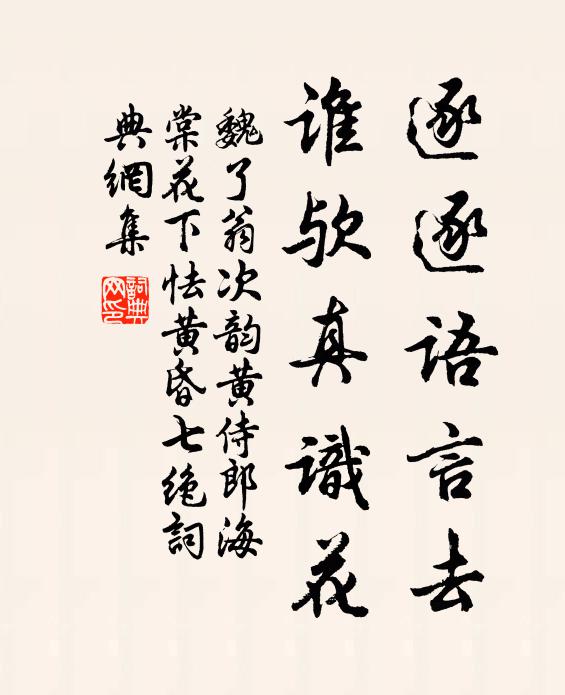 逐逐语言去
谁欤真識花
魏了翁次韵黄侍郎海
棠花下怯黄昏七绝詞
典網集
詞典
网印